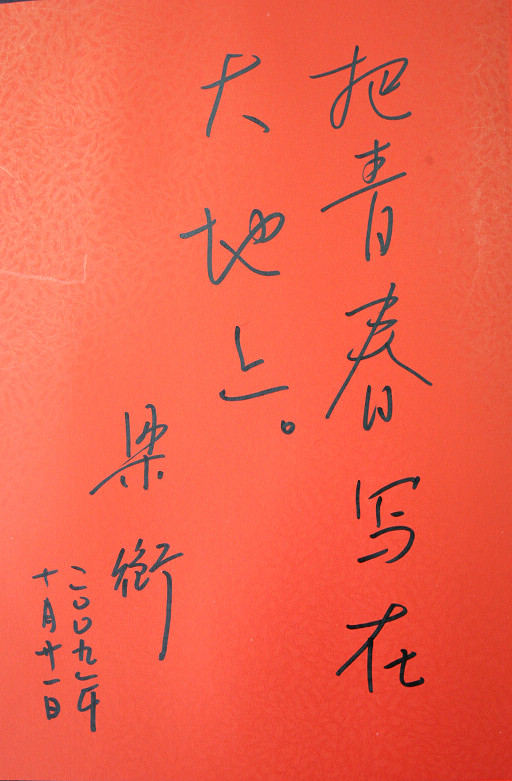 把青春写在
大地上。
梁衡
二〇〇九年
十月廿一日